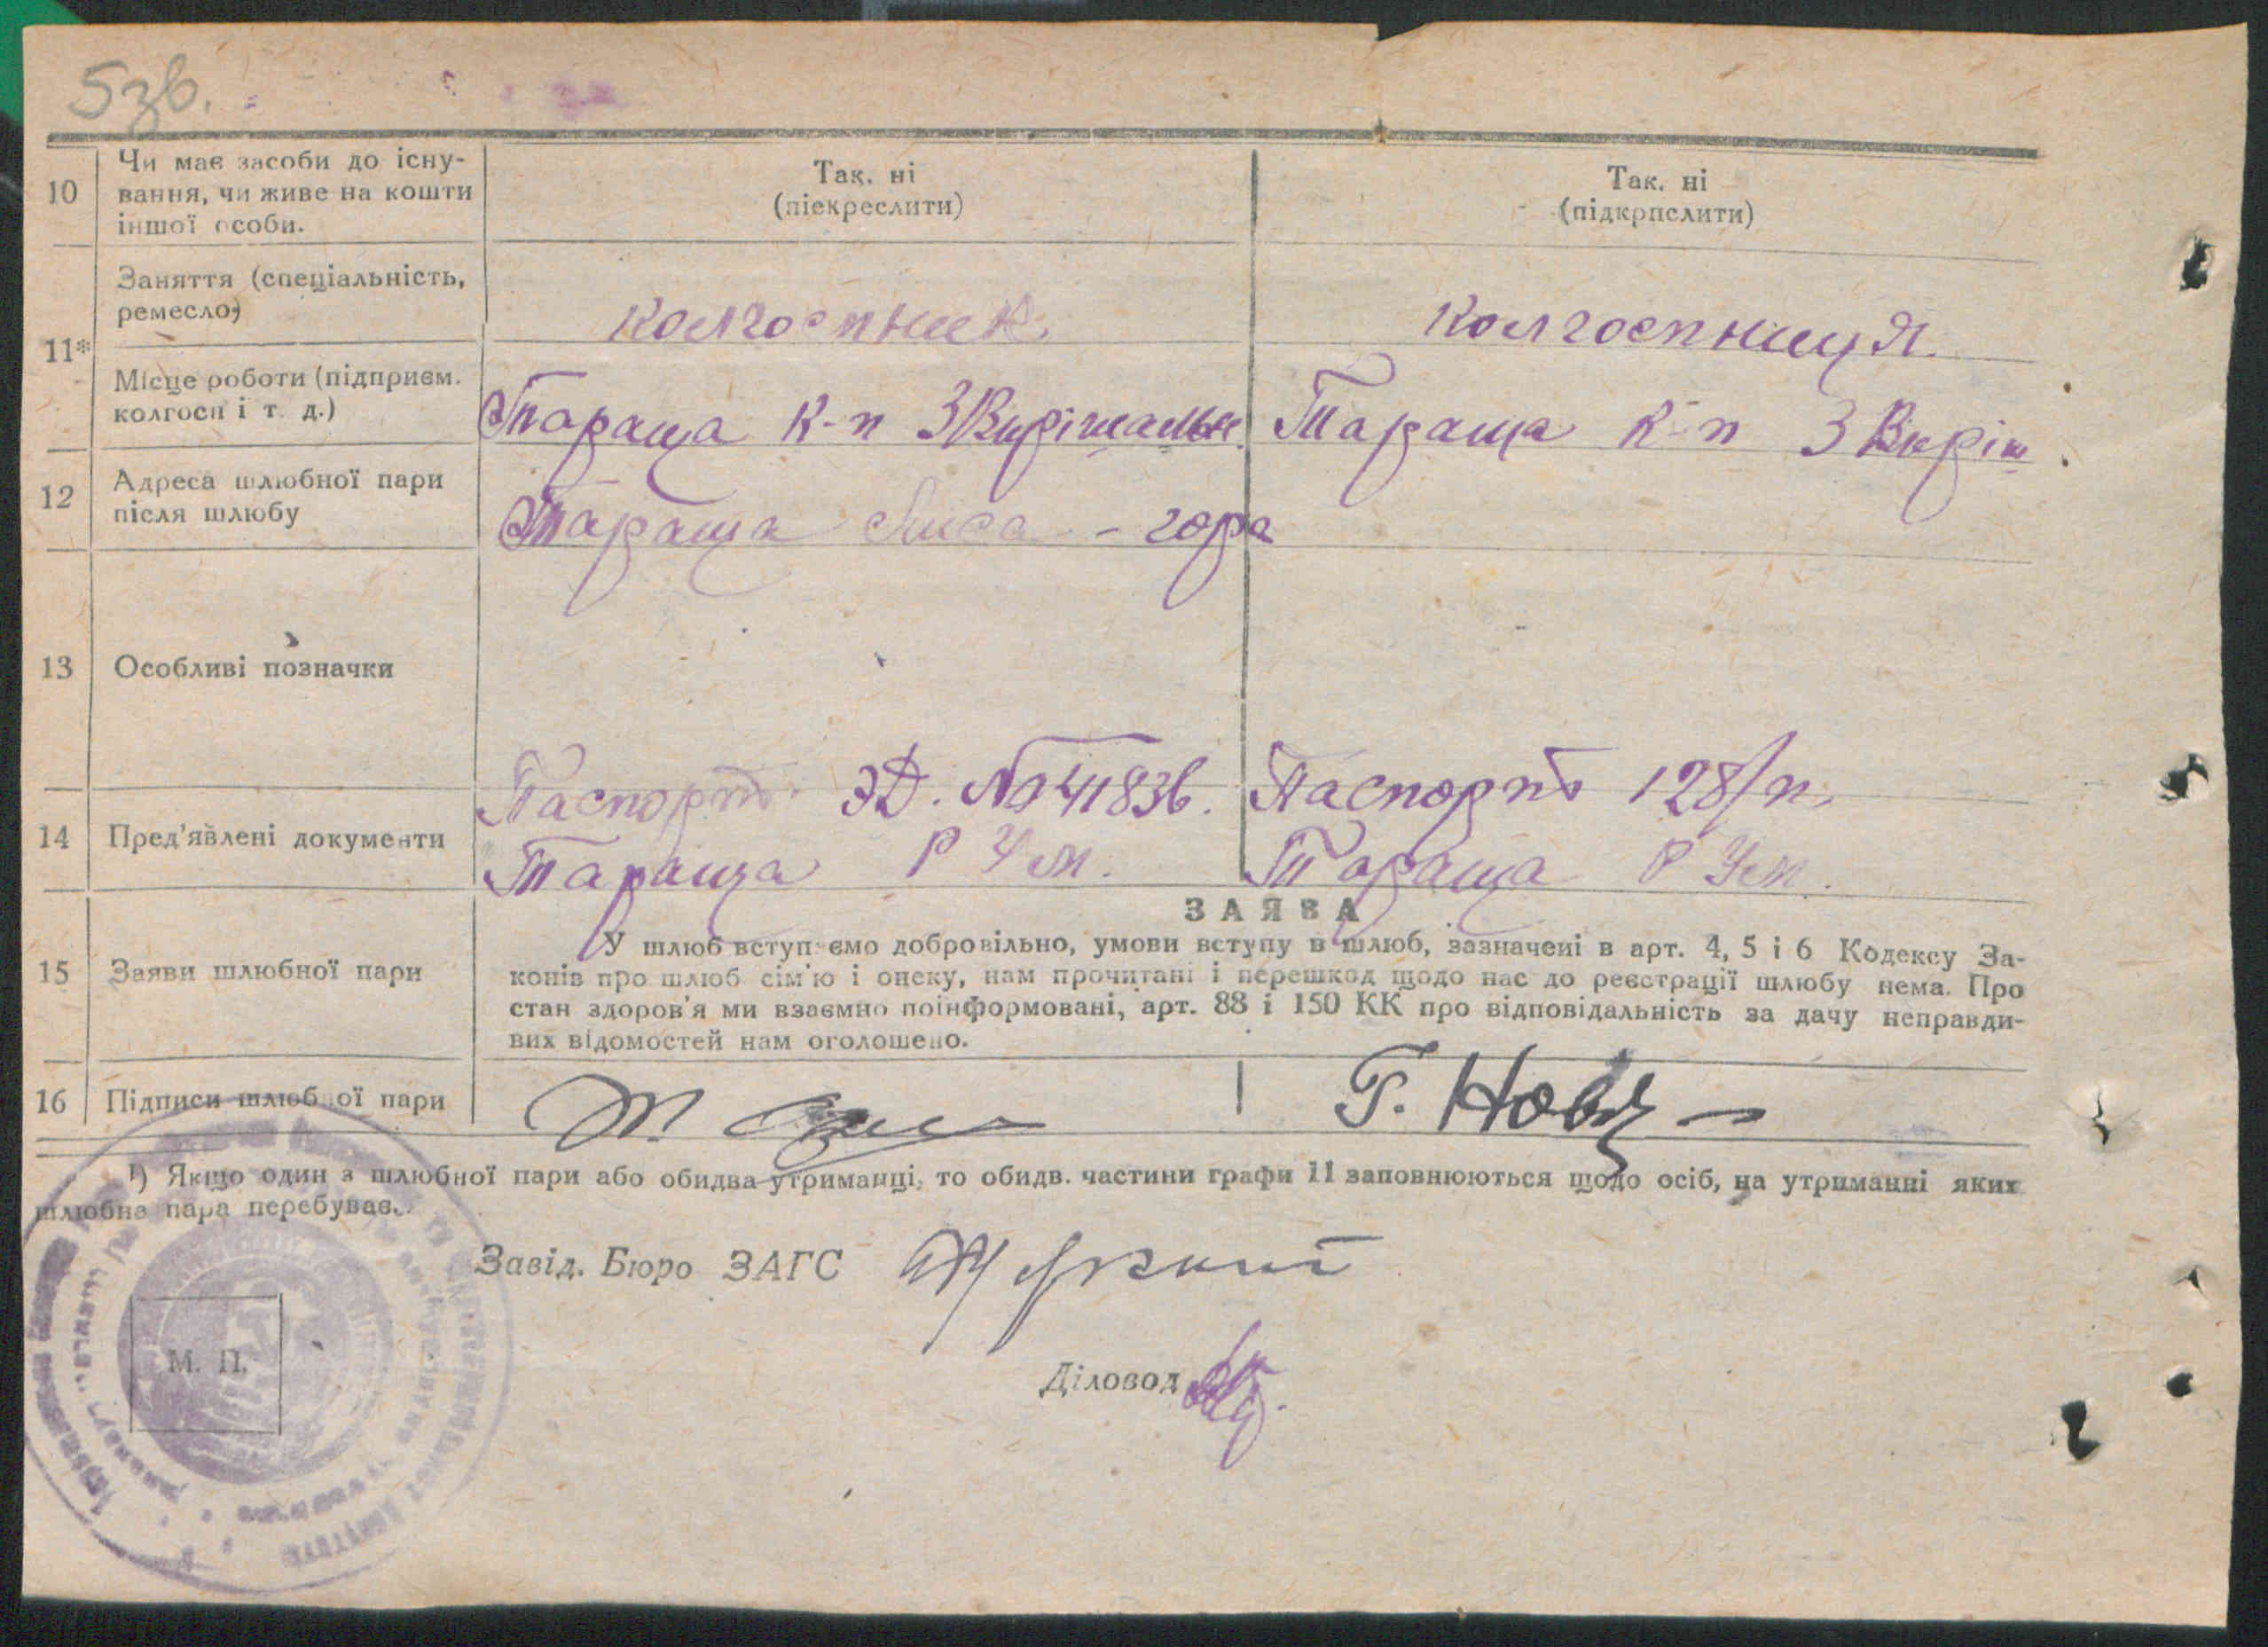 5зв.
10
Чи має засоби до існу-
вання, чи живе на кошти
іншої особи.
Так, ні
(піекреслити)
Так, ні
(підкрпслити)
11*
Заняття (спеціальність,
ремесло)
колгоспник.
колгоспниця.
Місце роботи (підприєм.
колгосп і т. д.)
Тараща к-п 3 Вирішальн.
Тараща к-п 3 Виріш
12
Адреса шлюбної пари
після шлюбу
Тараща Лиса - гора
13
Особливі позначки
14
Пред'явлені документи
Паспорт ЭД. № 411836.
Тараща Р У м.
Паспорт 128/п,
Тараща Р У м.
15
Заяви шлюбної пари
ЗАЯВА
У шлюб вступ ємо добровільно, умови вступу в шлюб, зазначені в арт. 4, 5 і 6 Кодексу За-
конів про шлюб сім'ю і опеку, нам прочитані і перешкод щодо нас до реєстрації шлюбу нема. Про
стан здоров'я ми взаємно поінформовані, арт. 88 і 150 КК про відповідальність за дачу неправди-
вих відомостей нам оголошено.
16
Підписи шлюбної пари
Г. Нов
¹) Якщо один з шлюбної пари або обидва утриманці, то обидв. частини графи 11 заповнюються щодо осіб, на утриманні яких
шлюбна пара перебуває.
Завід. Бюро ЗАГС
М. П.
Діловод